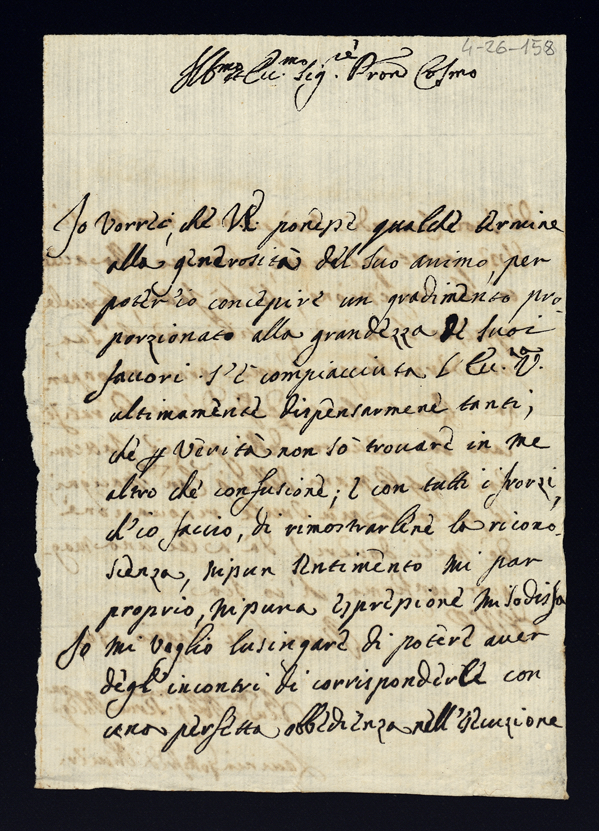 4-26-158
Ill.mo et Ecc.mo Sig.re Pron Cosmo
Io vorrei, che V.E. ponesse qualche termine
alla generosità del suo animo, per
poter'io concepire un gradimento pro-
porzionato alla grandezza de suoi
favori. S'è compiacciuta l'Ecc.za V.
ultimamente dispensarmene tanti,
che p verità non sò trovare in me
altro che confusione; e con tutti i sforzi,
ch'io faccio, di rimostrarlene la ricono-
scenza, nissun sentimento mi par
proprio, nissuna espressione mi sodisfa
Io mi voglio lusingare di potere aver
degl'incontri di corrisponderle con
una perfetta obbedienza nell'esecuzione